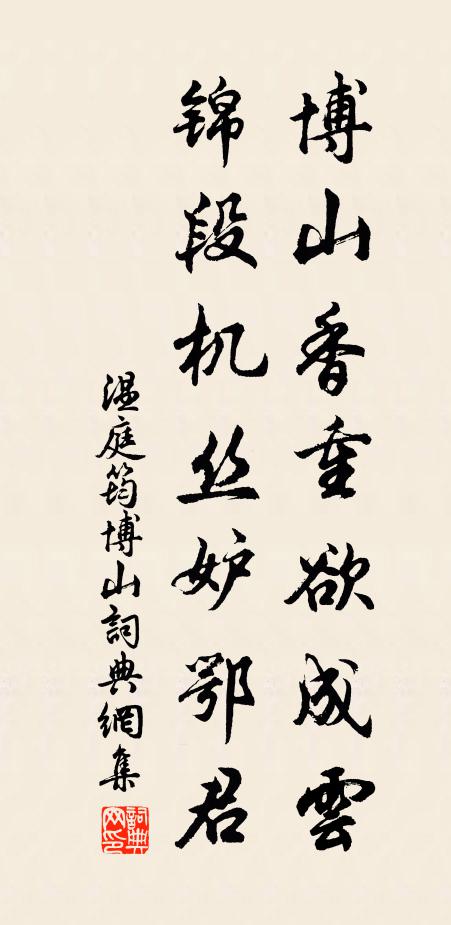 博山香重欲成雲
锦段机丝妒鄂君
温庭筠博山詞典網集
詞典網印